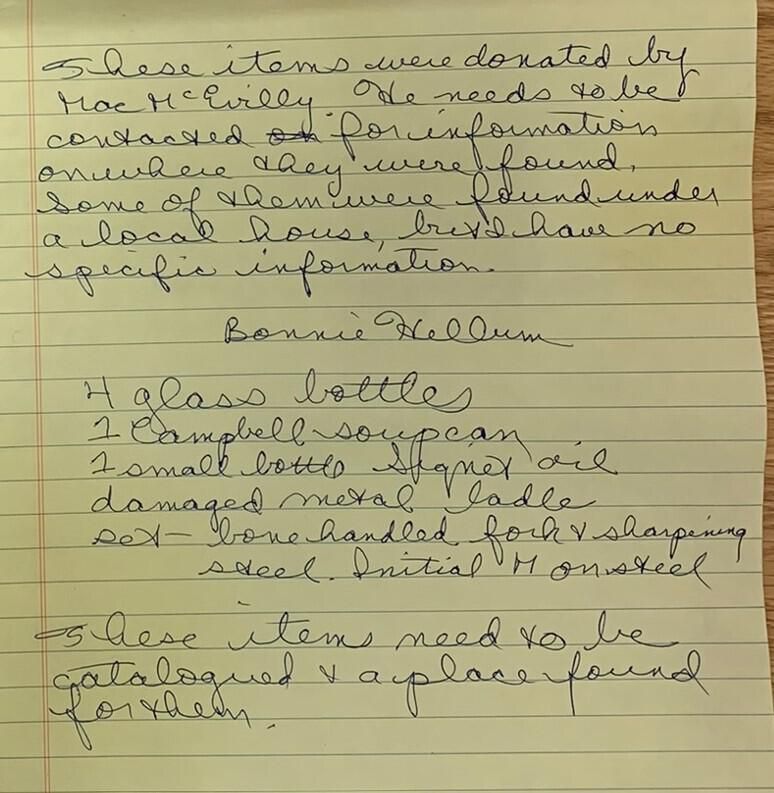 These items were donated by
Mac McEvilly He needs to be
contacted for information
on where they were found.
Some of them were found under
a local house, but I have no
specific information.
Bonnie Hellum
4 glass bottles
1 Campbell soup can
1 small bottle Signet oil
damaged metal ladle
set - bone handled fork & sharpening
steel. Initial M on steel
These items need to be
catalogued & a place found
for them.